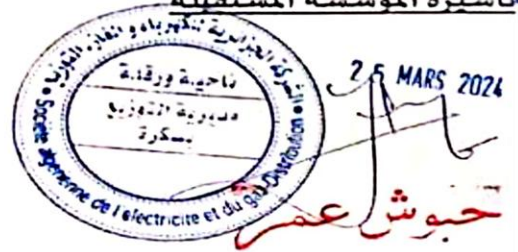 تأشيرة المؤسسة المستقبلة
الشركة الجزائرية للكهرباء و الغاز- التوزيع
ناحية ورقلة
مديرية التوزيع
بسكرة
Société algérienne de l'électricité et du gaz-Distribution
25 MARS 2024
حبوش عمر